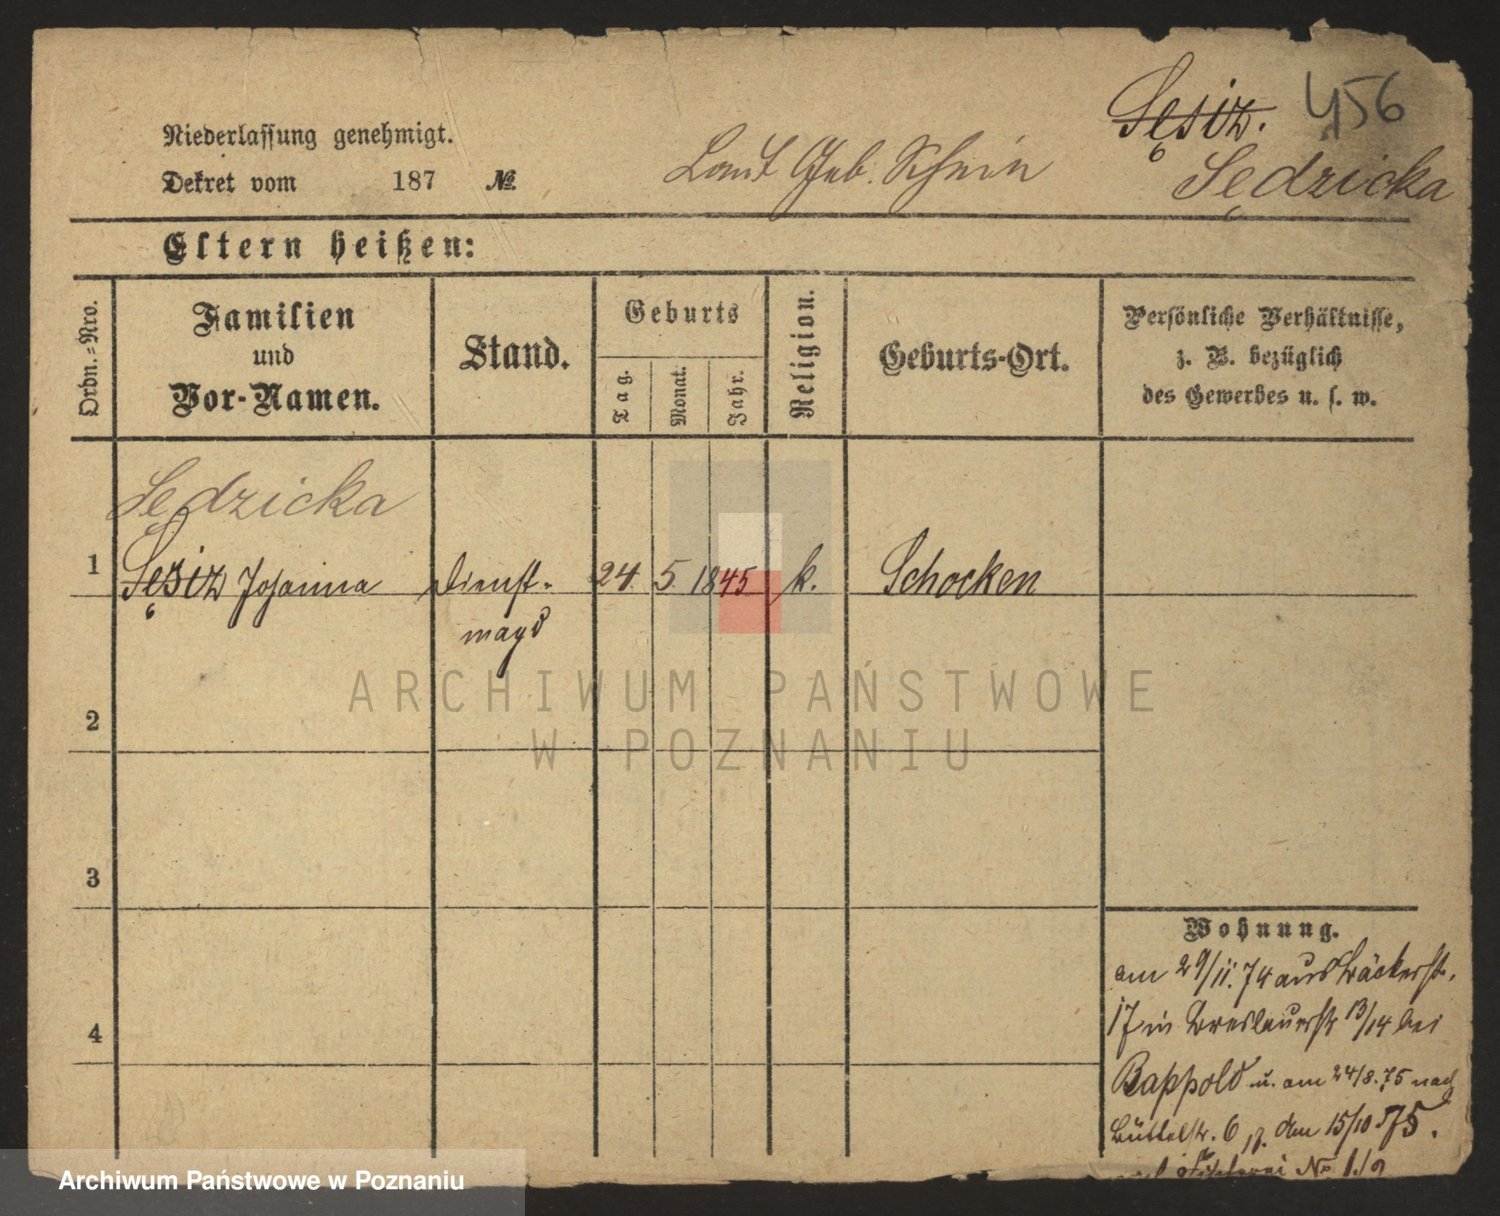 Sęsiz. 456
Niederlassung genehmigt.
Dekret vom 187 №
Laut Geb. Schein Sędzicka
Eltern heißen:
Ordn.-Nro.
Familien
und
Vor-Namen.
Stand.
Geburts
Tag.
Monat.
Jahr.
Religion.
Geburts-Ort.
Persönliche Verhältnisse,
z. B. bezüglich
des Gewerbes u. s. w.
Sedzicka
1 Sęsiz Johanna Dienst- 24 5 1845 k. Schocken
magd
2
3
4
Wohnung.
am 29/11. 74 aus Bäckerstr.
17 in Breslauerstr 13/14 bei
Bappold u. am 24/8. 75 nach
Büttelstr. 6, den 15/10 75.
№ 1/2
ARCHIWUM PAŃSTWOWE
W POZNANIU
Archiwum Państwowe w Poznaniu